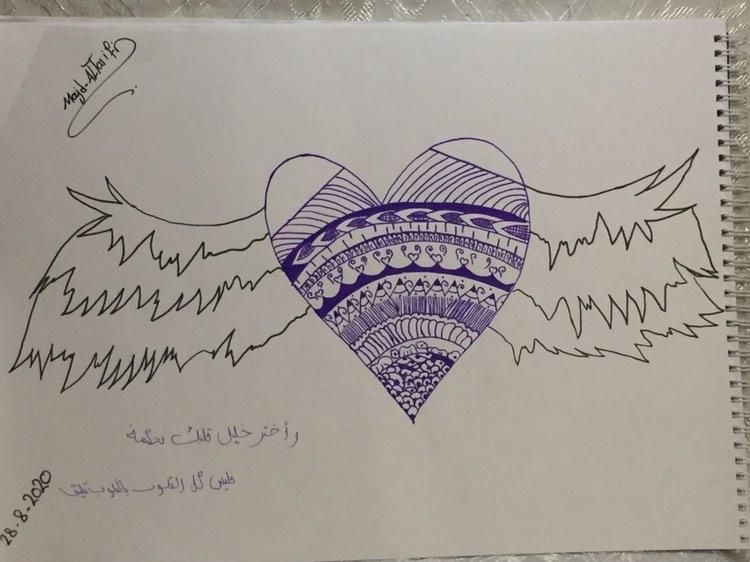 Majd-AlTaifi
وأختر خليل قلبك بحكمة
فليس كل القلوب بالقلوب تليق
28-8-2020